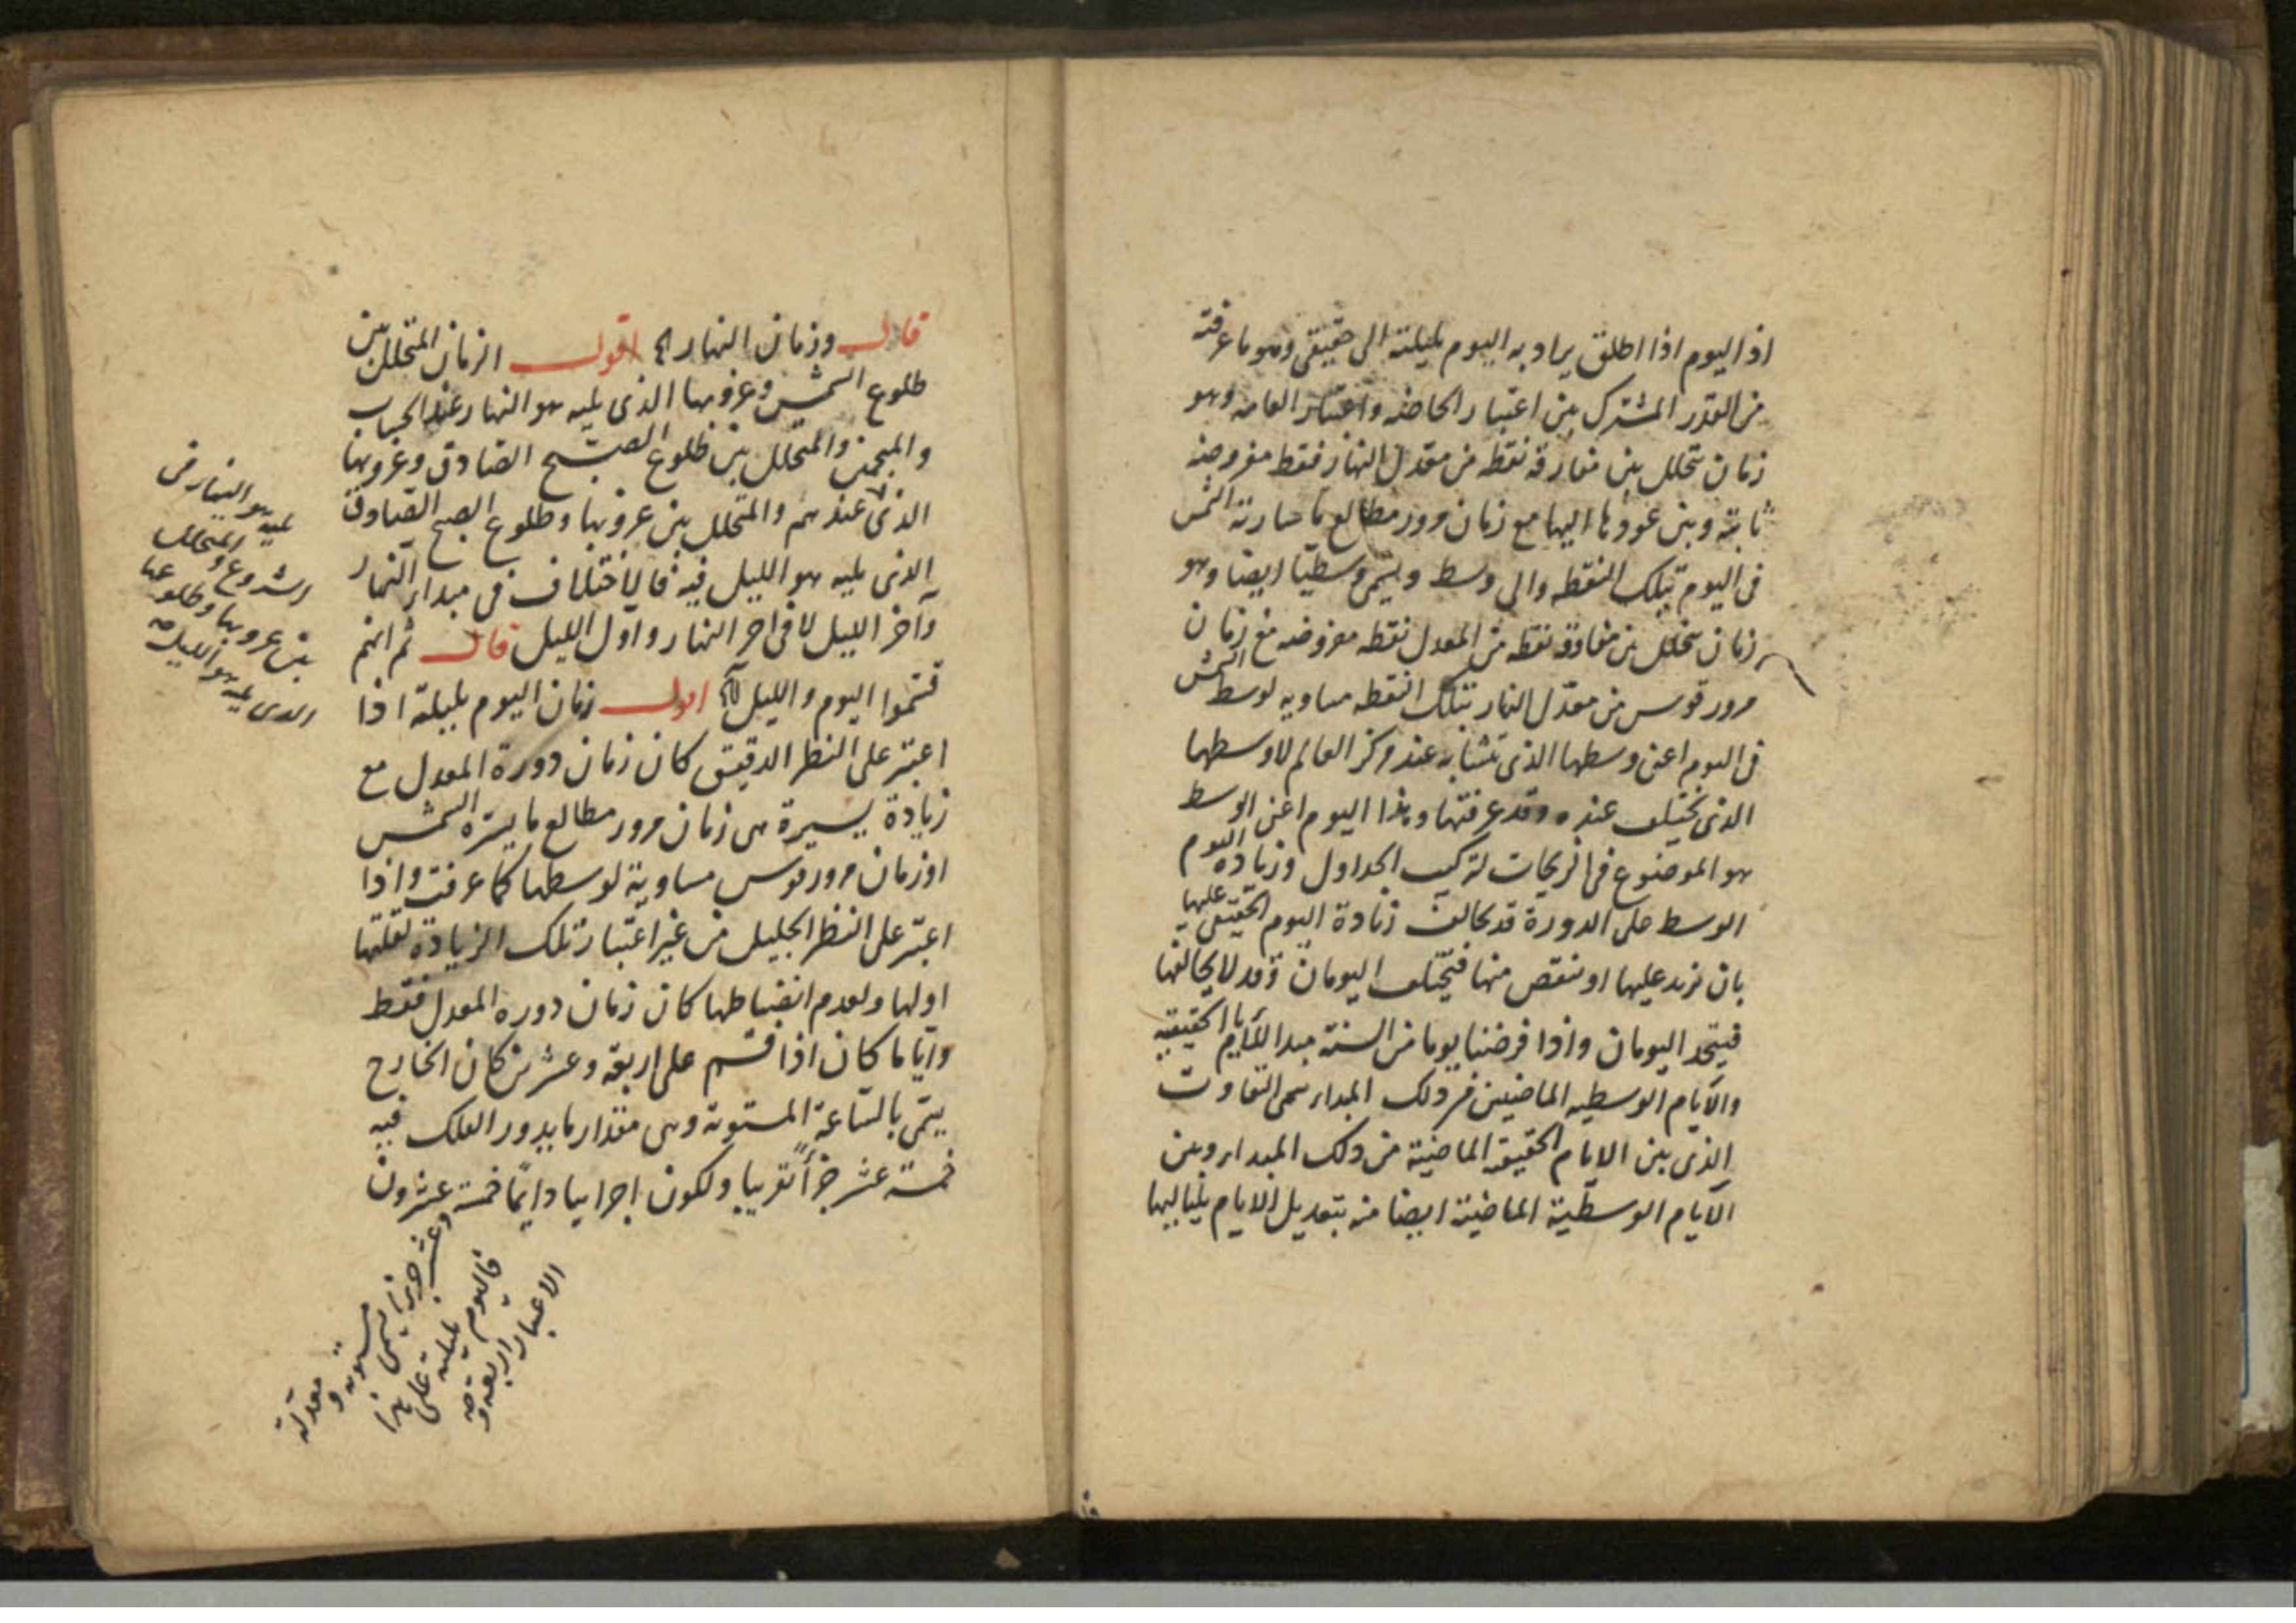 اذ اليوم اذا اطلق يراد به اليوم بليلته الى حقيقى وهو ما عرفته
من القدر المشترك بين اعتبار الخاصة واعتبار العامة وهو
زمان يتخلل بين مفارقة نقطه من معدل النهار فقط مفروضه
ثابتة وبين عودها اليها مع زمان مرور مطالع ما سارته الشمس
فى اليوم بتلك النقطه والى وسط ويسمى وسطيا ايضا وهو
زمان يتخلل بين مفارقة نقطه من المعدل نقطه مفروضه مع زمان
مرور قوس من معدل النهار بتلك النقطه مساويه لوسط الشمس
فى اليوم اعنى وسطها الذى تشابه عند مركز العالم لا وسطها
الذى يختلف عنده وقد عرفتها وهذا اليوم اعنى الوسط
هو الموضوع فى الزيجات لتركيب الجداول وزيادة اليوم
الوسط على الدورة قد يخالف زيادة اليوم الحقيقى عليها
بان تزيد عليها او ينقص منها فيختلف اليومان وقد لا يخالفها
فيتحد اليومان واذا فرضنا يوما من السنة مبدا للايام الحقيقيه
والايام الوسطيه الماضيين من ذلك المبداء سمى التفاوت
الذى بين الايام الحقيقية الماضية من ذلك المبداء وبين
الايام الوسطية الماضية ايضا منه بتعديل الايام بلياليها
قال وزمان النهار اه اقول الزمان المتخلل بين
طلوع الشمس وغروبها الذى يليه هو النهار عند الحساب
والمنجمين والمتخلل بين طلوع الصبح الصادق وغروبها
الذى عندهم والمتخلل بين غروبها وطلوع الصبح الصادق
الذى يليه هو الليل فيه فالاختلاف فى مبداء النهار
وآخر الليل لا فى اخر النهار واول الليل قال ثم انهم
قسموا اليوم والليل اه اقول زمان اليوم بليلته اذا
اعتبر على النظر الدقيق كان زمان دورة المعدل مع
زيادة يسيرة هى زمان مرور مطالع ما يسيره الشمس
او زمان مرور قوس مساوية لوسطها كما عرفت واذا
اعتبر على النظر الجليل من غير اعتبار تلك الزيادة لقلتها
اولها ولعدم انضباطها كان زمان دوره المعدل فقط
وايا ما كان اذا قسم على اربعة وعشرين كان الخارج
يسمى بالساعة المستوية وهى مقدار ما يدور الفلك فيه
خمسة عشر جزأ تقريبا ولكون اجزايها دايما خمسة عشرون
يليه هو النهار فى
الشروع والمتخلل
بين غروبها وطلوعها
الذى يليه هو الليل صح
وعشر جزءا يسمى مستوية و معدلة
فاليوم بليلته على هذا
الاعتبار اربعة و